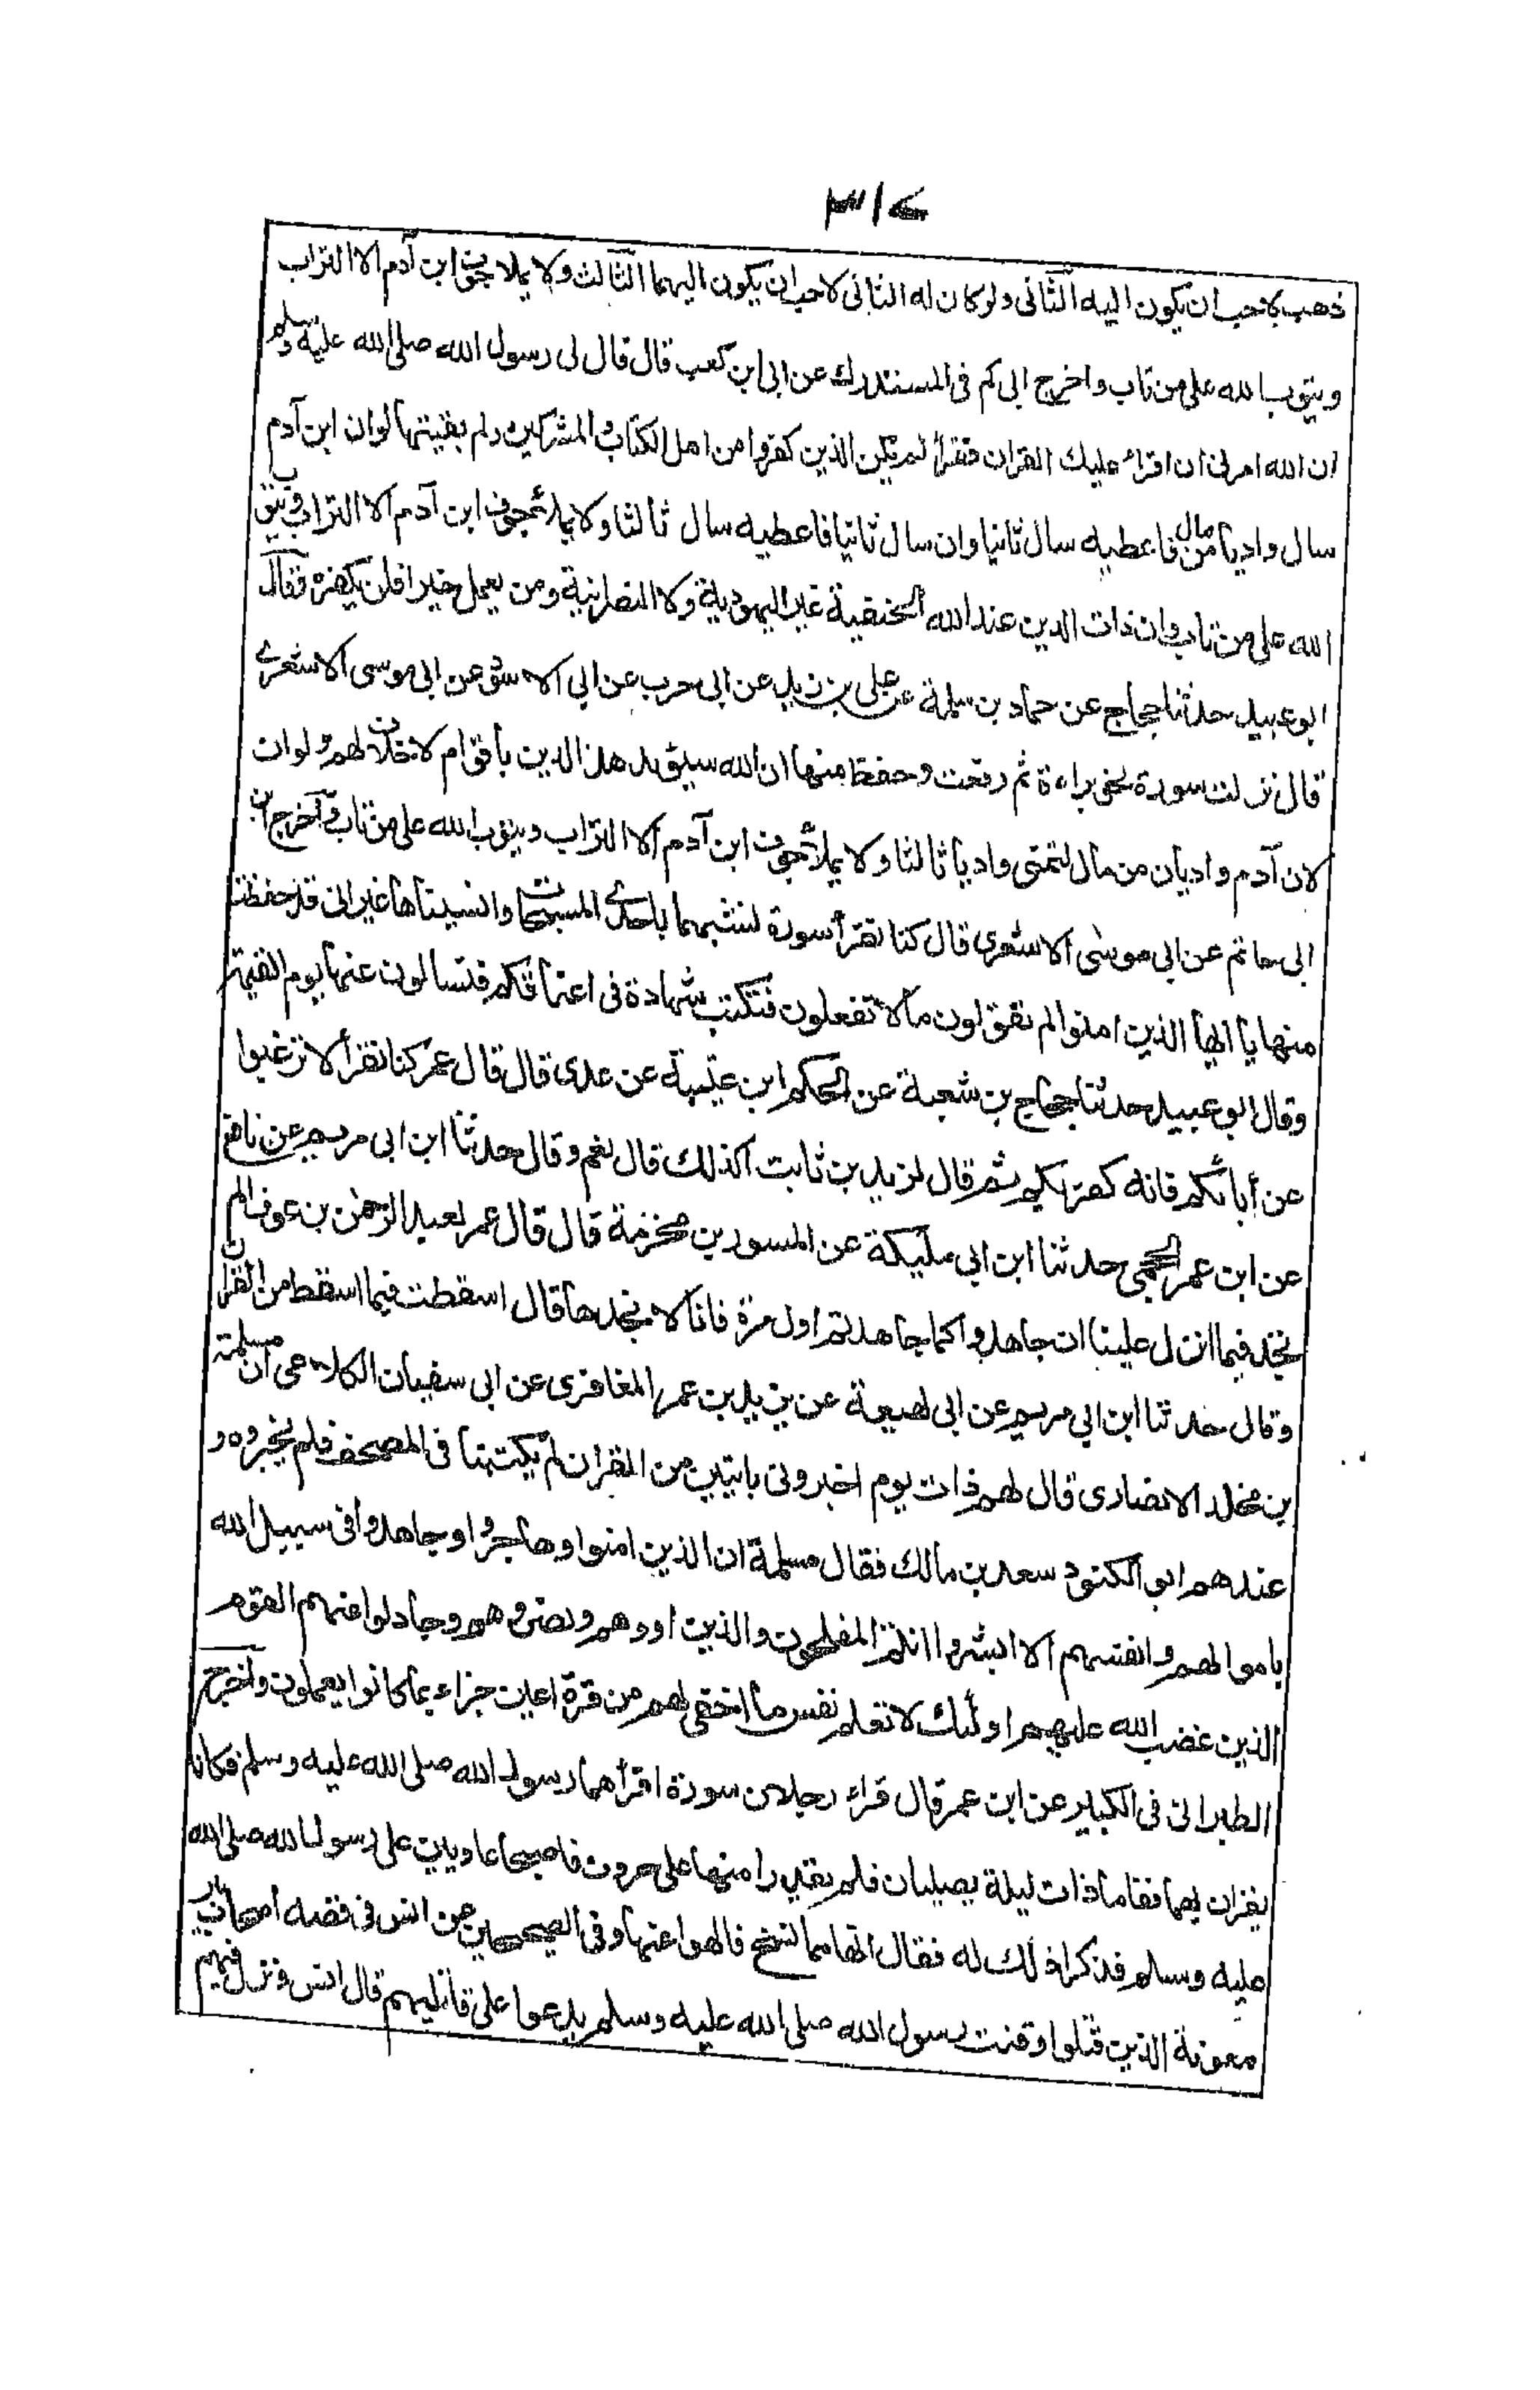 ٣١٧
ذهب لاحب ان يكون اليه الثانى ولو كان له الثانى لاحب ان يكون اليهما الثالث ولا يملا جوف ابن آدم الا التراب
ويتوب الله على من تاب واخرج الحاكم فى المستدرك عن ابى ابن كعب قال قال لى رسول الله صلى الله عليه وسلم
ان الله امرنى ان اقراء عليك القران فقرأ لم يكن الذين كفروا من اهل الكتاب والمشركين ولم بقيتها لوان ابن آدم
سال واديا من مال فاعطيه سال ثانيا وان سال ثانيا فاعطيه سال ثالثا ولا يملا جوف ابن آدم الا التراب ويتوب
الله على من تاب وان ذات الدين عند الله الحنيفية غير اليهودية ولا النصرانية ومن يعمل خيرا فلن يكفره فقال
ابو عبيد حدثنا حجاج عن حماد بن سلمة عن على بن زيد عن ابى حرب عن ابى الاسود عن ابى موسى الاشعرے
قال نزلت سورة نحو براءة ثم رفعت وحفظ منها ان الله سيؤيد هذا الدين باقوام لا خلاق لهم ولوان
لان آدم واديان من مال لتمنى واديا ثالثا ولا يملا جوف ابن آدم الا التراب ويتوب الله على من تاب وآخرج ابن
ابى حاتم عن ابى موسى الاشعرى قال كنا نقرأ سورة لنشبهها باحدے المسبحات وانسيناها غير انى قد حفظت
منها يا ايها الذين امنوا لم تقولون مالا تفعلون فتكتب شهادة فى اعناقكم فتسالون عنها يوم القيمة
وقال ابو عبيد حدثنا حجاج بن شعبة عن الحكم ابن عتيبة عن عدى قال قال عمر كنا نقرأ لا ترغبوا
عن أبائكم فانه كفر بكم ثم قال لزيد بن ثابت اكذلك قال نعم وقال حدثنا ابن ابى مريم عن نافع
عن ابن عمر الجمحى حدثنا ابن ابى مليكة عن المسور بن مخزمة قال قال عمر لعبد الرحمن بن عوف الم
نجد فيما انزل علينا ان جاهدوا كما جاهدتم اول مرة فانا لا نجدها قال اسقطت فيما اسقط من القران
وقال حدثنا ابن ابى مريم عن ابى لهيعة عن يزيد بن عمر المغافرى عن ابى سفيان الكلاعى ان مسلمة
بن مخلد الانصارى قال لهم ذات يوم اخبرونى بايتين من القران لم يكتبتا فى المصحف فلم يخبروه و
عندهم ابو الكنود سعد بن مالك فقال مسلمة ان الذين امنوا وهاجروا وجاهدوا فى سبيل الله
باموالهم وانفسهم الا ابشروا انتم المفلحون والذين اووهم ونصروهم وجادلوا عنهم القوم
الذين غضب الله عليهم اولئك لا تعلم نفس ما اخفى لهم من قرة اعين جزاء بما كانوا يعملون وآخرج
الطبرانى فى الكبير عن ابن عمر قال قراء رجلان سورة اقرأهما رسول الله صلى الله عليه وسلم فكانا
يقران بها فقاما ذات ليلة يصليان فلم يقدرا منها على حرون فاصبحا عاديين على رسول الله صلى الله
عليه وسلم فذكرا ذلك له فقال انها مما نسخ فالهوا عنها وفى الصحيحين عن انس فى قصه اصحاب بير
معونة الذين قتلوا وقنت رسول الله صلى الله عليه وسلم يدعوا على قاتليهم قال انس ونزل فيهم